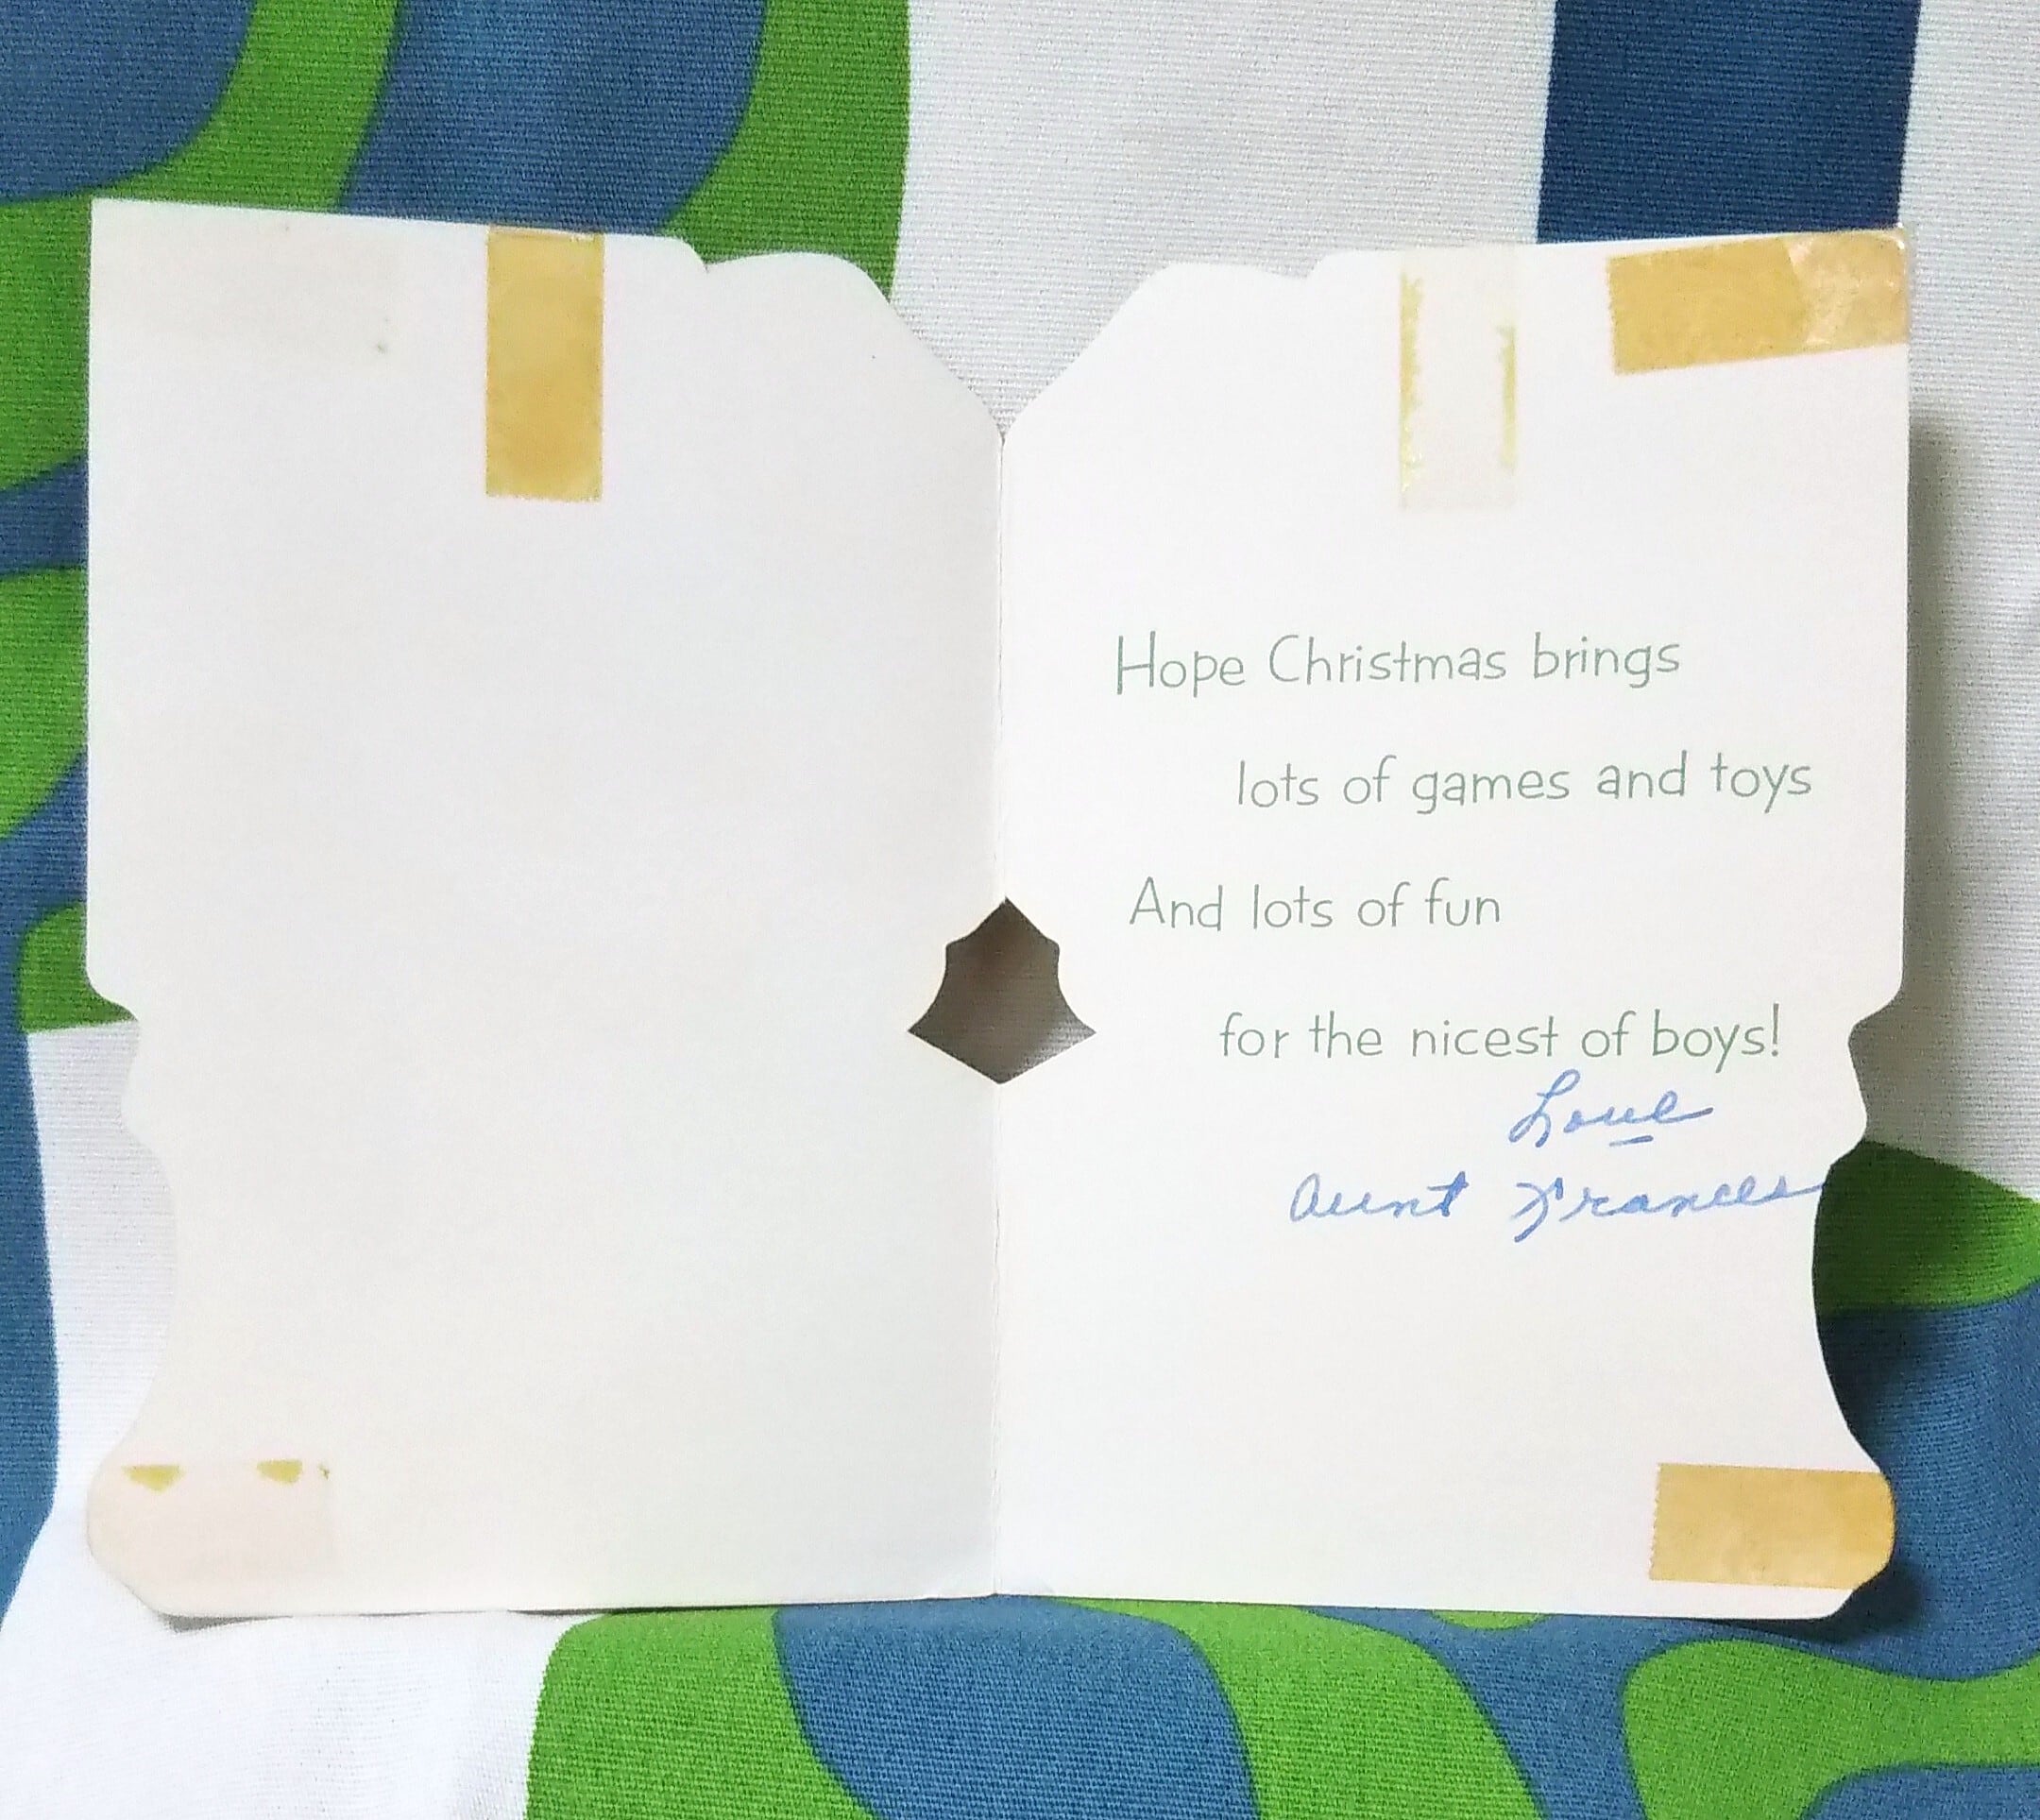 Hope Christmas brings
lots of games and toys
And lots of fun
for the nicest of boys!
Love
Aunt Frances